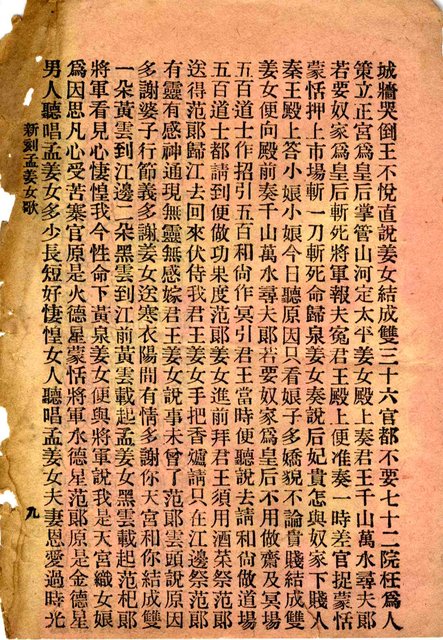 城牆哭倒王不悅直說姜女結成雙三十六官都不要七十二院枉為人
策立正宮為皇后掌管山河定太平姜女殿上奏君王千山萬水尋夫郞
若要奴家為皇后斬死將軍報夫冤君王殿上便准奏一時差官捉蒙恬
蒙恬押上市場斬一刀斬死命歸泉姜女奏說后妃貴怎與奴家下賤人
秦王殿上答小娘小娘今日聽原因只看娘子多嬌貌不論貴賤結成雙
姜女便向殿前奏千山萬水尋夫郞若要奴家為皇后不用做齋及冥場
五百道士作招引五百和尙作冥引君王當時便聽說去請和尙做道場
五百道士都請到便做功果度范郞姜女進前拜君王須用酒菜祭范郞
送得范郞歸江去回來伏侍我君王姜女手把香爐請只在江邊祭范郞
有靈有感神通現無靈無感嫁君王姜女說事未曾了范郞雲頭說原因
多謝婆子行節義多謝姜女送寒衣陽間有情多謝你天宮和你結成雙
一朵黃雲到江邊一朵黑雲到江前黃雲載起孟姜女黑雲載起范杞郞
將軍看見心悽惶我今性命下黃泉姜女便與將軍說我是天宮織女娘
為因思凡心受苦寨官原是火德星蒙恬將軍水德星范郞原是金德星
男人聽唱孟姜女多少長短好悽惶女人聽唱孟姜女夫妻恩愛過時光
新刻孟姜女歌
九